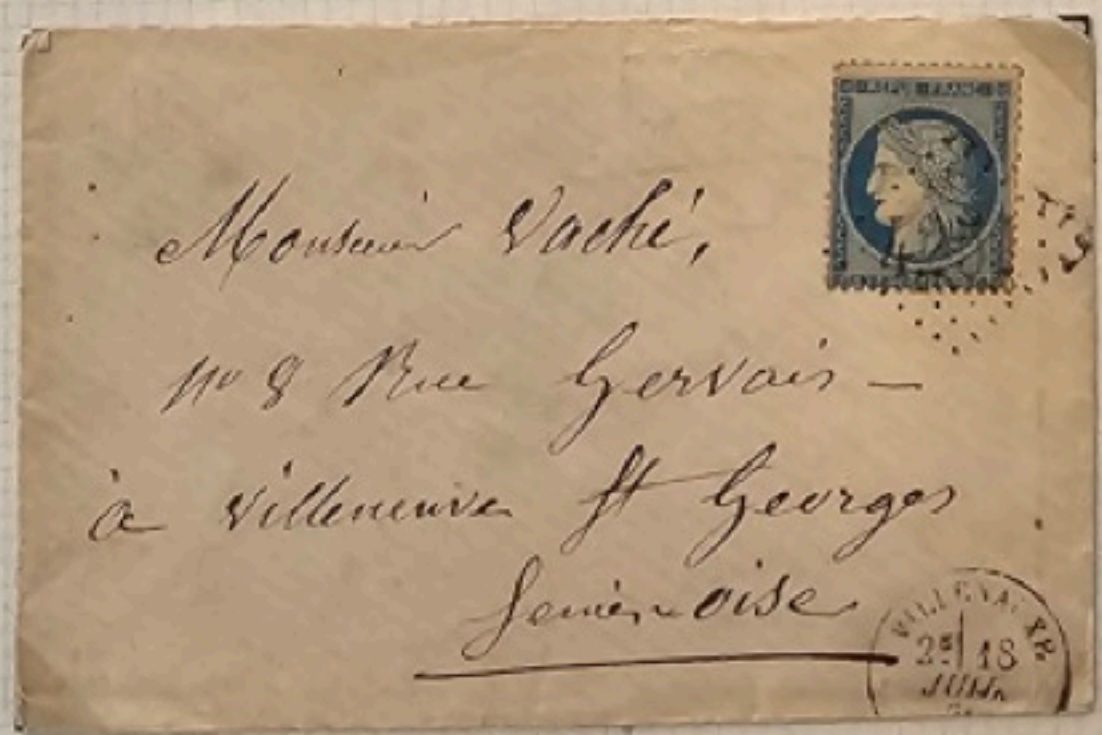 Monsieur Vaché,
n° 8 Rue Gervais –
à Villeneuve St Georges
Seine & oise
2E 18
JUIN